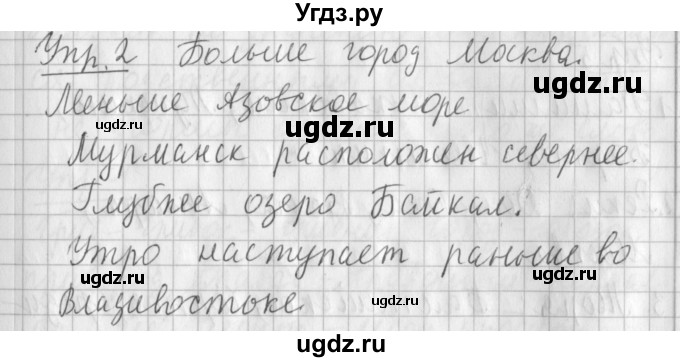 Угдз.ру
Упр. 2 Больше город Москва.
Меньше Азовское море
Мурманск расположен севернее.
Глубже озеро Байкал.
Утро наступает раньше во
Владивостоке
ugdz.ru
ugdz.ru
ugdz.ru
ugdz.ru
ugdz.ru
ugdz.ru
ugdz.ru
ugdz.ru
ugdz.ru
ugdz.ru
ugdz.ru